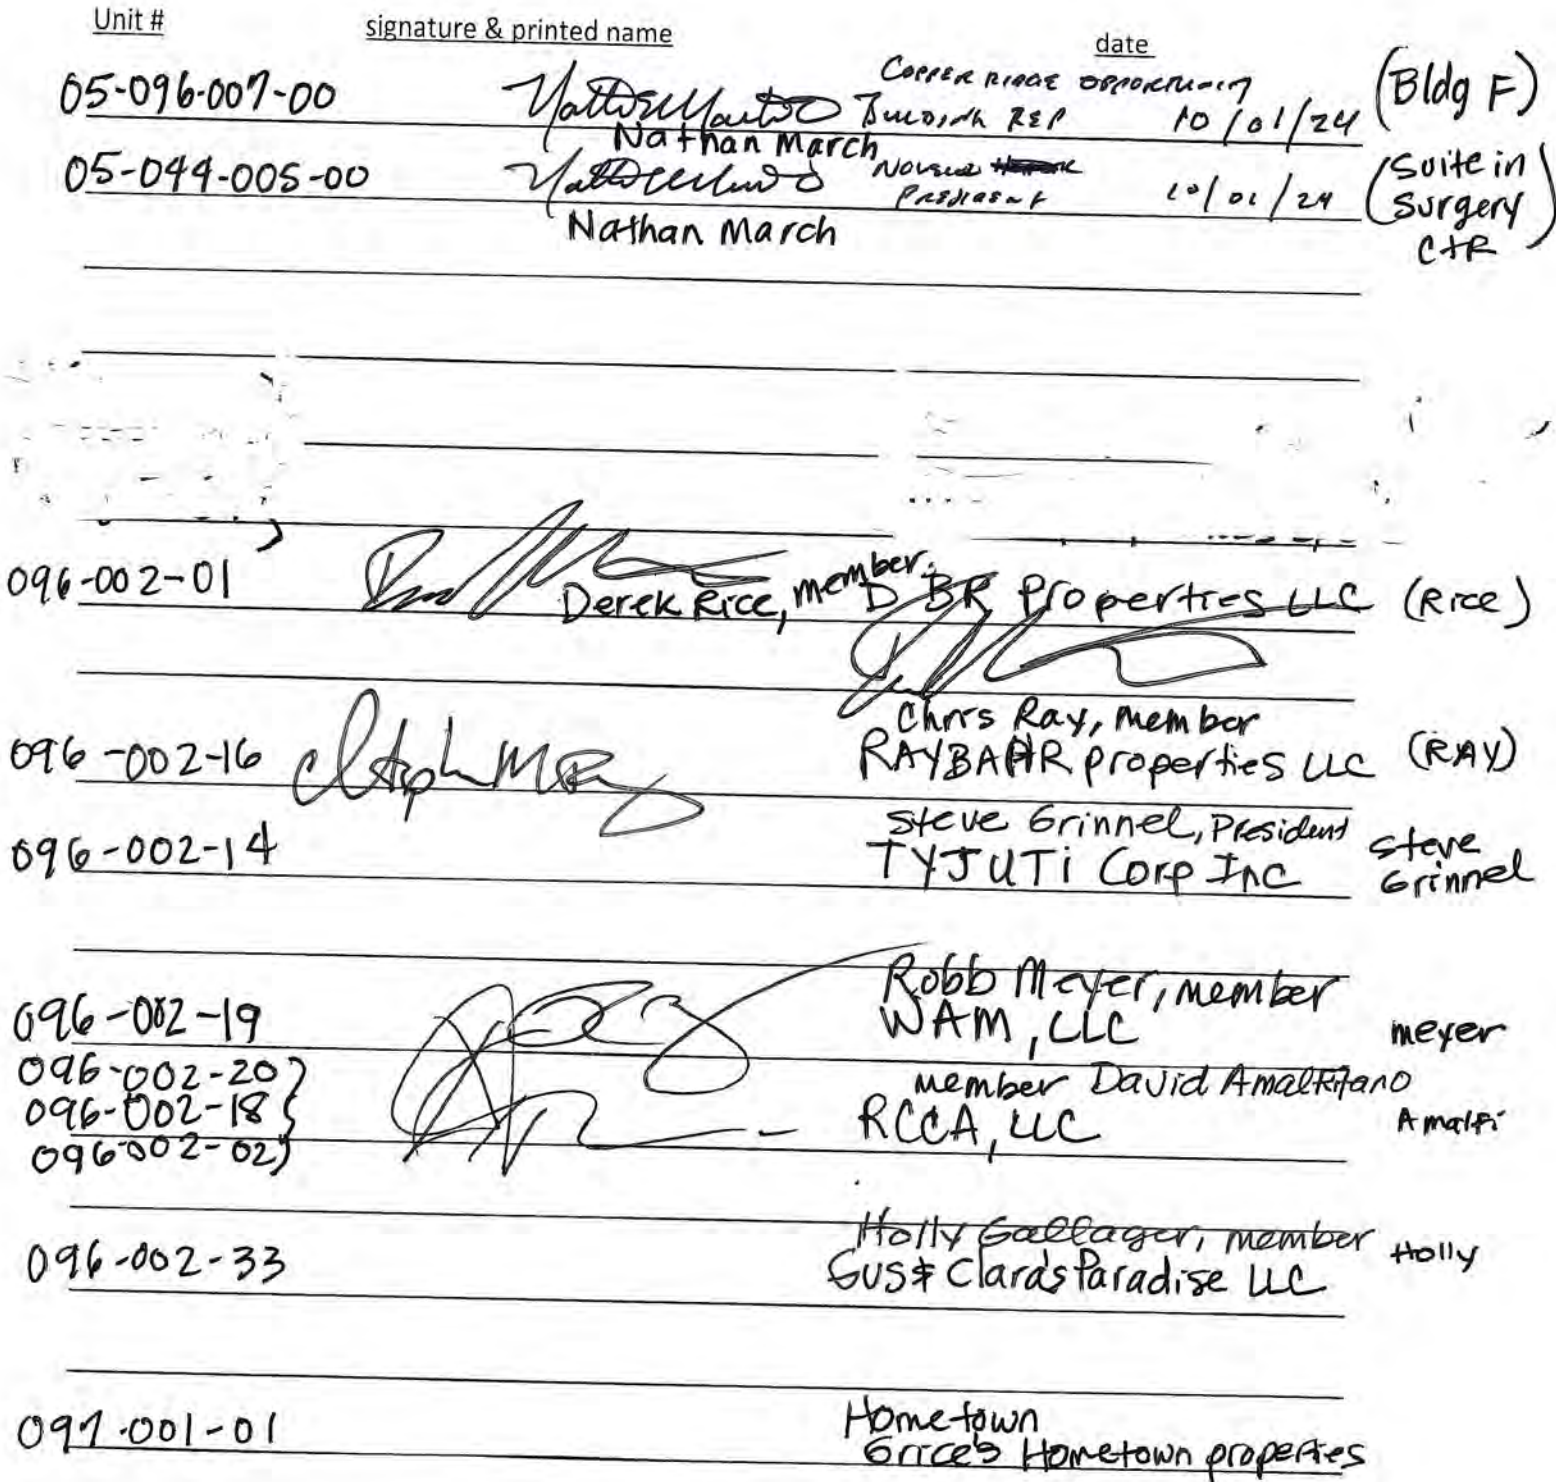 Unit # signature & printed name date
05-096-007-00 Copper Ridge Opportunity (Bldg F)
Building Rep 10/01/24
Nathan March
05-044-005-00 President 10/01/24 (Suite in Surgery CtR)
Nathan March
096-002-01 Derek Rice, member DBR Properties LLC (Rice)
Chris Ray, member
096-002-16 RAYBAHR properties LLC (RAY)
Steve Grinnel, President
096-002-14 TYJUTi Corp Inc Steve Grinnel
Robb Meyer, member
096-002-19 WAM, LLC meyer
096-002-20 member David Amalfitano
096-002-18 RCCA, LLC Amalfi
096-002-02
Holly Gallager, member
096-002-33 Gus & Clara's Paradise LLC Holly
Hometown
097-001-01 Grice's Hometown properties